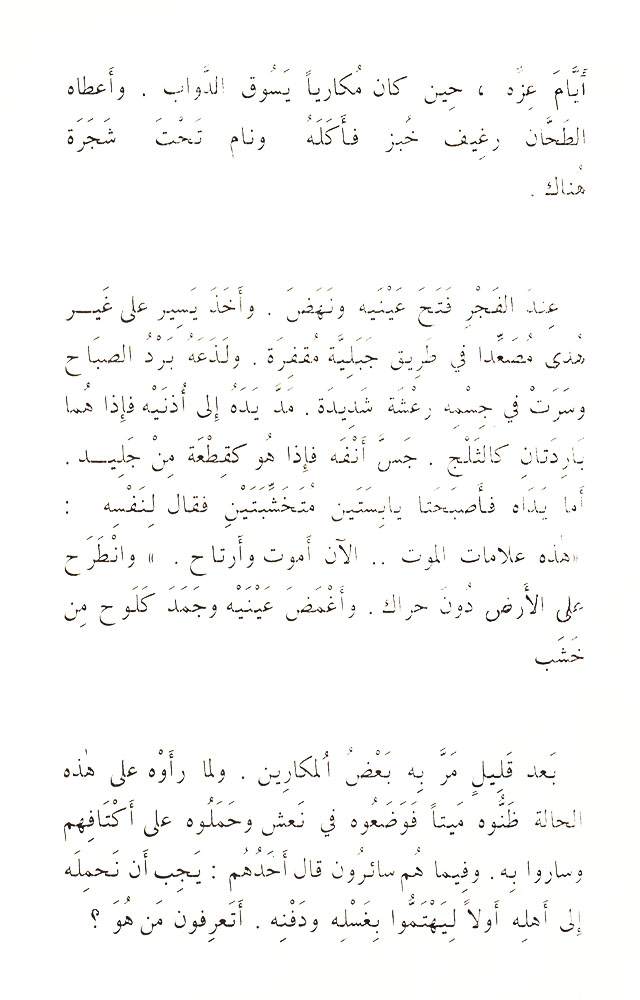 أَيَّامَ عِزِّه ، حِين كان مُكارياً يَسُوق الدَّواب . وأَعطاه
الطَحَّان رغِيف خُبز فأَكَلَهُ ونام تَحْتَ شَجَرَة
هُناك .
عِندَ الفَجْرِ فَتَحَ عَيْنَيه ونَهَضَ . وأَخَذَ يَسِير على غَيـر
هُدَى مُصَعِّدا في طَرِيق جَبَلِيَّة مُقفِرَة . ولَذَعَهُ بَرْدُ الصبَاح
وسَرَتْ في جِسْمِه رِعْشَة شَدِيدَة . مَدَّ يَدَهُ إلى أُذنَيْه فإذا هُما
بَارِدَتانِ كالثَلْج . جَسَّ أَنْفَه فإذا هُو كقِطْعَة مِنْ جَلِيـد .
أَما يَدَاه فأَصبَحَتا يابِسَتَين مُتَخَشِّبَتَيْنِ فقال لِنَفْسِه :
«هٰذه علامات الموت .. الآن أَموت وأَرتاح . » وانْطَرَح
على الأَرض دُونَ حراك . وأَغْمَضَ عَيْنَيْه وجَمَدَ كَلَوح مِن
خَشَب
بَعد قَلِيلٍ مَرَّ بِه بَعْضُ اُلمكارِين . ولما رأَوْه على هٰذه
الحالة ظَنُّوه مَيتاً فَوَضَعُوه في نَعش وحَمَلُوه على أَكْتَافِهِم
وساروا بِه . وفِيما هُم سائرُون قال أَحَدُهُم : يَجِب أَن نَحمِلَه
إلى أَهلِه أَولاً لِيَهْتَمُّوا بِغَسْلِه ودَفْنِه . أَتَعرِفون مَن هُوَ ؟